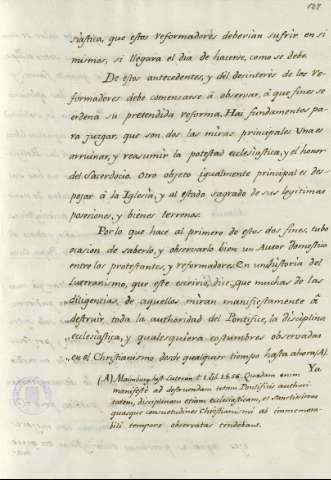 127
siàstica, que estos reformadores deberian sufrir en si
mismos, si llegara el dia de hacerse, como se debe.
De estos antecedentes, y del desinterès de los re-
formadores debe comenzarse à observar, à que fines se
ordena su pretendida reforma. Hai fundamentos pa-
ra juzgar, que son dos las miras principales. Una es
arruinar, y reasumir la potestad ecclesiastica, y el honor
del Sacerdocio. Otro objeto igualmente principal es des-
pojar à la Iglesia, y al estado sagrado de sus legitimas
posesiones, y bienes terrenos.
Por lo que hace al primero de estos dos fines, tubo
ocasion de saberlo, y observarlo bien un Autor domestico
entre los protestantes, y reformadores. En una historia del
Luteranismo, que este escriviò, dice, que muchas de las
diligencias de aquellos miran manifiestamente à
destruir toda la authoridad del Pontifice, la disciplina
ecclesiàstica, y qualesquiera costumbres observadas
en el Christianismo desde qualquier tiempo hasta ahora (A).
Ya
(A) Maimburg hist. Luteran. t. 1. lib. 1. S. 56. Quadam enim
manifestè ad destruendam totam Pontificis authori-
tatem, disciplinam etiam ecclesiasticam, et sanctissimas
quasque consuetudines Christianismi ab immemora-
bili tempore observatas tendebant.